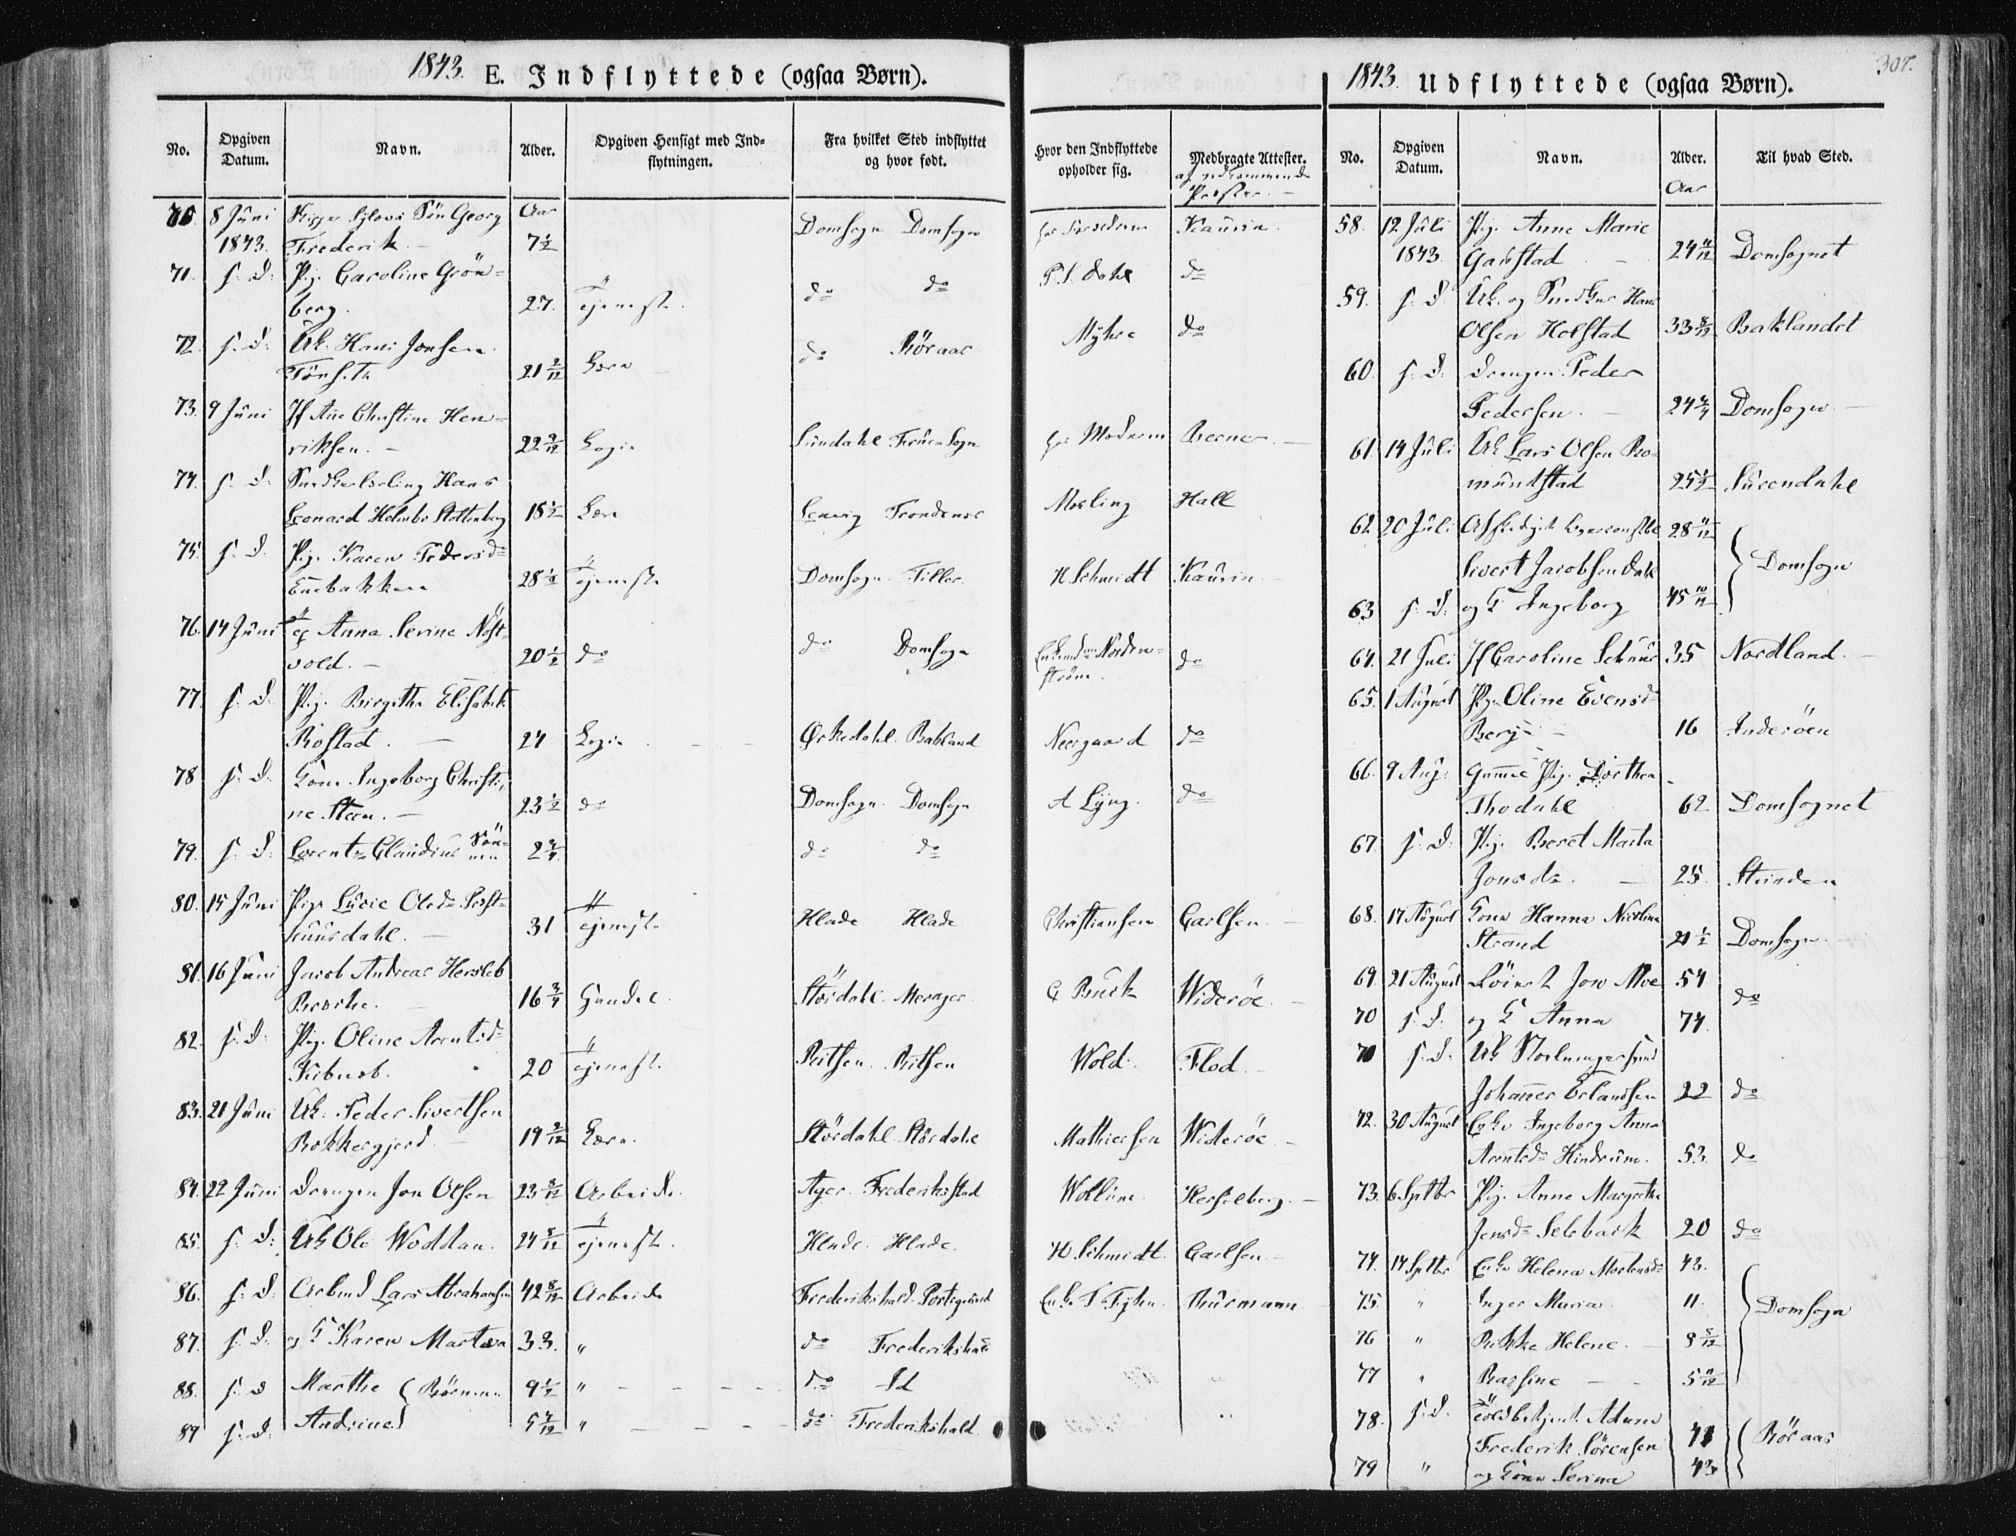 1843. E. Indflyttede (ogsaa Børn).
No. Opgiven Datum. Navn. Alder. Opgiven Hensigt med Indflytningen. Fra hvilket Sted indflyttet og hvor født. Hvor den Indflyttede opholder sig. Medbragte Attester.
Aar
8 Juni Søn Georg Domsogn Domsogn Kaurin
1843. Frederik 7½
71. s. D. Pig. Caroline Grön-
berg. 27. Tjeneste do do P. S. Dahl do
72. s. D. Uk. Hans Jonsen
Tønseth 21 2/12 Lære do Röraas Myhre do
73. 9 Juni Jf Ane Christine Hen-
riksen. 22 Logie Sundahl Frue Sogn hos Moderen Berner
74. s. D. Hans
Leonard Holmbo Stoltenberg 18½ Lære Lenvig Trondenes Mosling Hall
75. s. D. Pig. Karen Pedersd
28½ Tjeneste Domsogn Tiller H Schmidt Kaurin
76. 14 Juni Anna Serine Nöst-
vold. 20½ do do Domsogn do
77. s. D. Pig. Birgitha Elisabeth
Rostad. 24 Logie Ørkedahl. Bakland Neergaard do
78 s. D. Kone Ingeborg Christi-
ne Steen. 23½ do Domsogn. Domsogn A Lyng. do
79. s. D. Lorentz Claudius Sön-
nen 2¾ do do
80. 15 Juni Pige Lucie Olsd
31 Tjeneste Hlade Hlade Christiansen Carlsen
81. 16 Juni Jacob Andreas Hersleb
16¾ Handel. Stördahl. Merager C Buck Wideröe.
82. s. D. Pig. Oline Arntsd
20 Tjeneste Ritsen. Ritsen Wold. Flod.
83. 21 Juni Uk. Peder Sivertsen
Rokkergjerd. 19 Lære Stördahl Stördahl Mathiesen Wideröe
84. 22 Juni Drengen Jon Olsen 23 Arbeide. Ager. Frederiksstad
85. s. D. Uk Ole Woddan. 24 Tjeneste. Hlade. Hlade. H Schmidt. Carlsen
86. s. D. Arbmd Lars Abrahamsen 42 8/12 Arbeide Frederikshald. Enke Thurmann
87. s. D. og K Karen Martea 33. " do Frederikshald
88. s. D Marthe } Börnene 9½ " do Id
89 s. D. Andrine } 5 " do Frederikshald.
1843. Udflyttede (ogsaa Børn). 307.
No. Opgiven Datum. Navn. Alder. Til hvad Sted.
Aar
58. 12 Juli Pig. Anne Marie
1843. Garstad 24 Domsognet
59. s. D. Uk. og Snedker Hans
Olsen Holstad 33 8/12 Baklandet
60. s. D. Drengen Peder
Pedersen. 24 Domsogn
61. 14 Juli Uk Lars Olsen Ro-
mundstad 25½ Surendahl
62. 20 Juli 28
Sivert Jacobsen Dahl } Domsogn
63 s. D. og K Ingeborg 45 10/12
64. 21 Juli Jf Caroline Schnür 35 Nordland.
65. 1 August Pige Oline Evensd
Berg 16 Inderöen
66. 9 Aug. Gamle Pig. Dorthea
Thodahl 62 Domsognet
67. s. D. Pig. Beret Marta
Jonsd. 25. Strinden
68. 17 August Kone Hanna Nicoline
Strand 21½ Domsogn.
69. 21 August Jon Moe 54 do
70 s. D. og K Anna 74.
71 s. D. Uk
Johannes Erlandsen 22 do
72. 30 August Enke Ingeborg Anna
Arntsd Hindrum. 53. do
73. 6 Septbr Pig. Anne Margrethe
Jensd Selebäck 20 do
74. 14 Septbr Enke Helena Mortensd 43.
75. " Inger Maria 11. } Domsogn
76 " Rikke Helene. 8 5/12
77 " Bassine 5 11/12
78. s. D. Toldbetjent Adam
Frederik Sörensen 41 } Röraas
79 " og Kone Serina 43